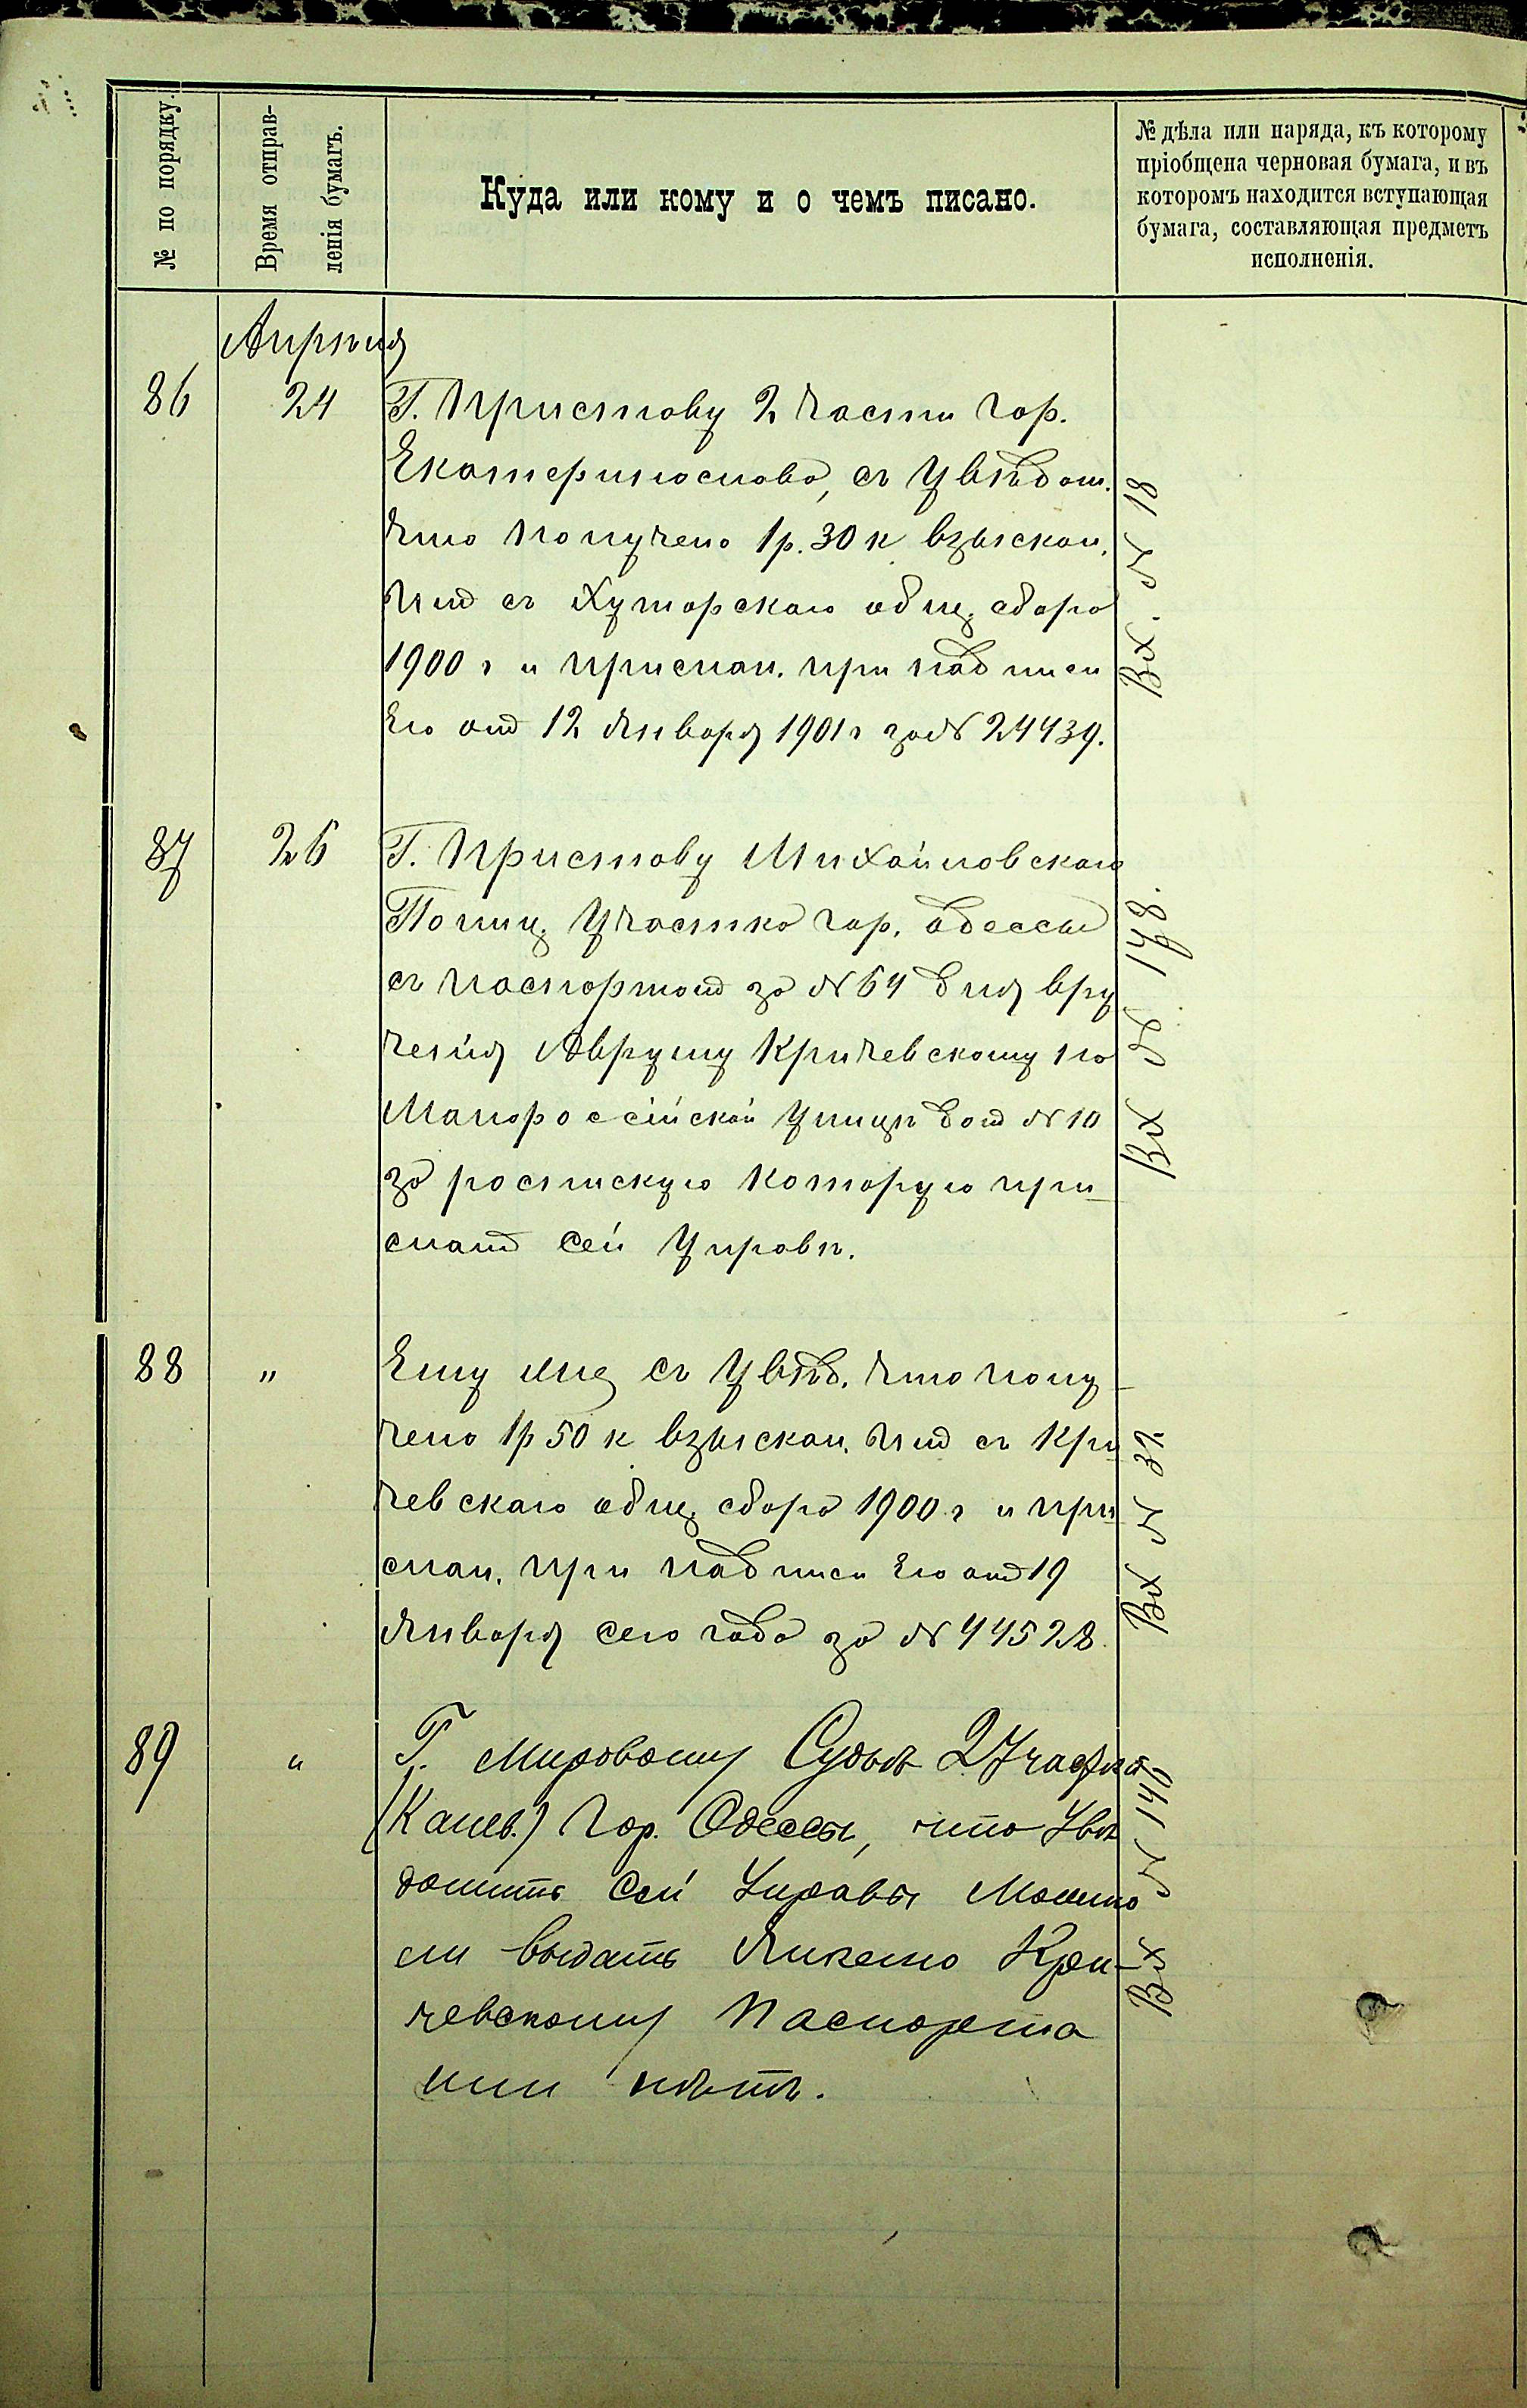 № по порядку.
Время отправ-
ленія бумагъ.
Куда или кому и о чемъ писано.
№ дѣла или наряда, къ которому
пріобщена черновая бумага, и въ
которомъ находится вступающая
бумага, составляющая предметъ
исполненія.
Апрѣля
86 24 Г. Приставу 2 части гор.
Екатеринослава, съ увѣдом.
что получено 1 р. 30 к взыскан.
имъ съ Хуторскаго общ. сбора
1900 г и прислан. при надписи
Его отъ 12 Января 1901 г за № 24439.
Вх. № 18
87 26 Г. Приставу Михайловскаго
Полиц. Участка гор. Одессы
съ паспортомъ за № 64 для вру
ченія Авруму Кричевскому по
Малороссійской улицѣ домъ № 10
за росписку которую при-
слать сей Управѣ.
Вх № 178.
88 " Ему же съ увѣд. что полу-
чено 1 р 50 к взыскан. имъ съ Кри
чевскаго общ. сбора 1900 г и при
слан. при надписи Его отъ 19
Января сего года за № 44528.
Вх № 37.
89 " Г. Мировому Судьѣ 2 Участка
(Камев.) Гор. Одессы, что Увѣ
домить Сей Управы Можно
ли выдать Кри-
чевскому Паспорта
или нѣтъ.
Вх № 146